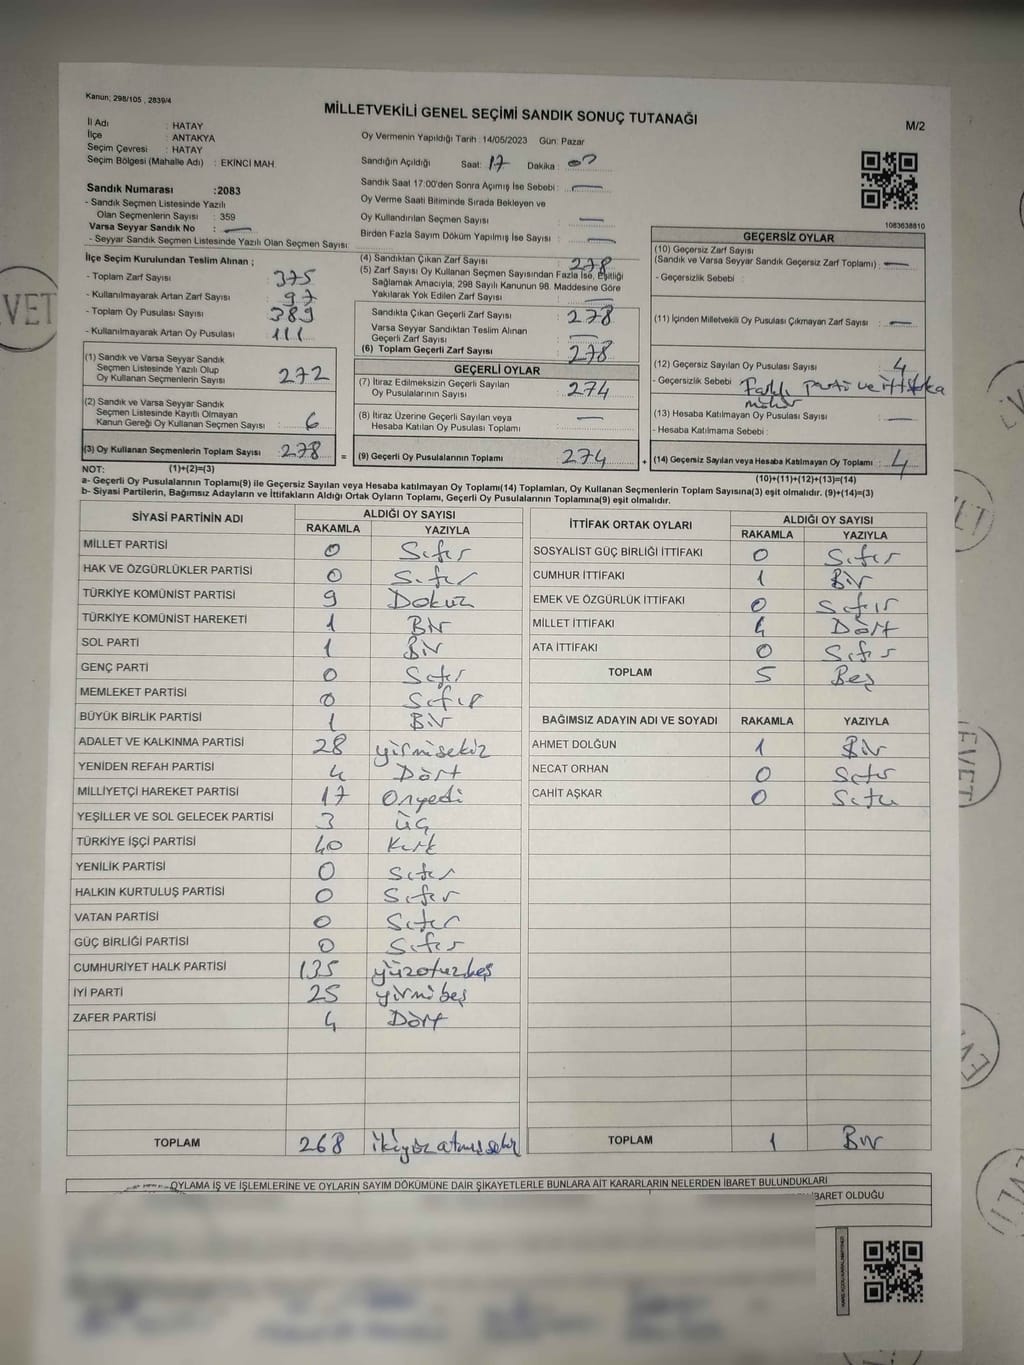 Kanun; 298/105 , 2839/4
MİLLETVEKİLİ GENEL SEÇİMİ SANDIK SONUÇ TUTANAĞI
M/2
İl Adı : HATAY
İlçe : ANTAKYA
Seçim Çevresi : HATAY
Seçim Bölgesi (Mahalle Adı) : EKİNCİ MAH.
Oy Vermenin Yapıldığı Tarih : 14/05/2023 Gün: Pazar
Sandığın Açıldığı Saat: 17 Dakika :
Sandık Saat 17:00'den Sonra Açımış İse Sebebi : —
Oy Verme Saati Bitiminde Sırada Bekleyen ve
Oy Kullandırılan Seçmen Sayısı —
Birden Fazla Sayım Döküm Yapılmış İse Sayısı : —
Sandık Numarası :2083
- Sandık Seçmen Listesinde Yazılı
Olan Seçmenlerin Sayısı : 359
Varsa Seyyar Sandık No : —
- Seyyar Sandık Seçmen Listesinde Yazılı Olan Seçmen Sayısı:
1083638810
İlçe Seçim Kurulundan Teslim Alınan ;
- Toplam Zarf Sayısı : 375
- Kullanılmayarak Artan Zarf Sayısı : 97
- Toplam Oy Pusulası Sayısı : 389
- Kullanılmayarak Artan Oy Pusulası : 111
(1) Sandık ve Varsa Seyyar Sandık
Seçmen Listesinde Yazılı Olup
Oy Kullanan Seçmenlerin Sayısı : 272
(2) Sandık ve Varsa Seyyar Sandık
Seçmen Listesinde Kayıtlı Olmayan
Kanun Gereği Oy Kullanan Seçmen Sayısı : 6
(3) Oy Kullanan Seçmenlerin Toplam Sayısı : 278
(4) Sandıktan Çıkan Zarf Sayısı : 278
(5) Zarf Sayısı Oy Kullanan Seçmen Sayısından Fazla İse, Eşitliği
Sağlamak Amacıyla, 298 Sayılı Kanunun 98. Maddesine Göre
Yakılarak Yok Edilen Zarf Sayısı : —
Sandıkta Çıkan Geçerli Zarf Sayısı : 278
Varsa Seyyar Sandıktan Teslim Alınan
Geçerli Zarf Sayısı : —
(6) Toplam Geçerli Zarf Sayısı : 278
GEÇERLİ OYLAR
(7) İtiraz Edilmeksizin Geçerli Sayılan
Oy Pusulalarının Sayısı : 274
(8) İtiraz Üzerine Geçerli Sayılan veya
Hesaba Katılan Oy Pusulası Toplamı : —
= (9) Geçerli Oy Pusulalarının Toplamı : 274
GEÇERSİZ OYLAR
(10) Geçersiz Zarf Sayısı
(Sandık ve Varsa Seyyar Sandık Geçersiz Zarf Toplamı) : —
- Geçersizlik Sebebi :
(11) İçinden Milletvekili Oy Pusulası Çıkmayan Zarf Sayısı : —
(12) Geçersiz Sayılan Oy Pusulası Sayısı : 4
- Geçersizlik Sebebi : Farklı parti ve ittifaka
mühür
(13) Hesaba Katılmayan Oy Pusulası Sayısı : —
- Hesaba Katılmama Sebebi :
+ (14) Geçersiz Sayılan veya Hesaba Katılmayan Oy Toplamı : 4
NOT: (1)+(2)=(3)
(10)+(11)+(12)+(13)=(14)
a- Geçerli Oy Pusulalarının Toplamı(9) ile Geçersiz Sayılan veya Hesaba katılmayan Oy Toplamı(14) Toplamları, Oy Kullanan Seçmenlerin Toplam Sayısına(3) eşit olmalıdır. (9)+(14)=(3)
b- Siyasi Partilerin, Bağımsız Adayların ve İttifakların Aldığı Ortak Oyların Toplamı, Geçerli Oy Pusulalarının Toplamına(9) eşit olmalıdır.
SİYASİ PARTİNİN ADI ALDIĞI OY SAYISI
RAKAMLA YAZIYLA
MİLLET PARTİSİ 0 Sıfır
HAK VE ÖZGÜRLÜKLER PARTİSİ 0 Sıfır
TÜRKİYE KOMÜNİST PARTİSİ 9 Dokuz
TÜRKİYE KOMÜNİST HAREKETİ 1 Bir
SOL PARTİ 1 Bir
GENÇ PARTİ 0 Sıfır
MEMLEKET PARTİSİ 0 Sıfır
BÜYÜK BİRLİK PARTİSİ 1 Bir
ADALET VE KALKINMA PARTİSİ 28 yirmisekiz
YENİDEN REFAH PARTİSİ 4 Dört
MİLLİYETÇİ HAREKET PARTİSİ 17 Onyedi
YEŞİLLER VE SOL GELECEK PARTİSİ 3 üç
TÜRKİYE İŞÇİ PARTİSİ 40 Kırk
YENİLİK PARTİSİ 0 Sıfır
HALKIN KURTULUŞ PARTİSİ 0 Sıfır
VATAN PARTİSİ 0 Sıfır
GÜÇ BİRLİĞİ PARTİSİ 0 Sıfır
CUMHURİYET HALK PARTİSİ 135 yüzotuzbeş
İYİ PARTİ 25 yirmibeş
ZAFER PARTİSİ 4 Dört
TOPLAM 268 ikiyüzatmışsekiz
İTTİFAK ORTAK OYLARI ALDIĞI OY SAYISI
RAKAMLA YAZIYLA
SOSYALİST GÜÇ BİRLİĞİ İTTİFAKI 0 Sıfır
CUMHUR İTTİFAKI 1 Bir
EMEK VE ÖZGÜRLÜK İTTİFAKI 0 Sıfır
MİLLET İTTİFAKI 4 Dört
ATA İTTİFAKI 0 Sıfır
TOPLAM 5 Beş
BAĞIMSIZ ADAYIN ADI VE SOYADI RAKAMLA YAZIYLA
AHMET DOLĞUN 1 Bir
NECAT ORHAN 0 Sıfır
CAHİT AŞKAR 0 Sıfır
TOPLAM 1 Bir
OYLAMA İŞ VE İŞLEMLERİNE VE OYLARIN SAYIM DÖKÜMÜNE DAİR ŞİKAYETLERLE BUNLARA AİT KARARLARIN NELERDEN İBARET BULUNDUKLARI
İBARET OLDUĞU
EVET
EVET
EVET
EVET
EVET